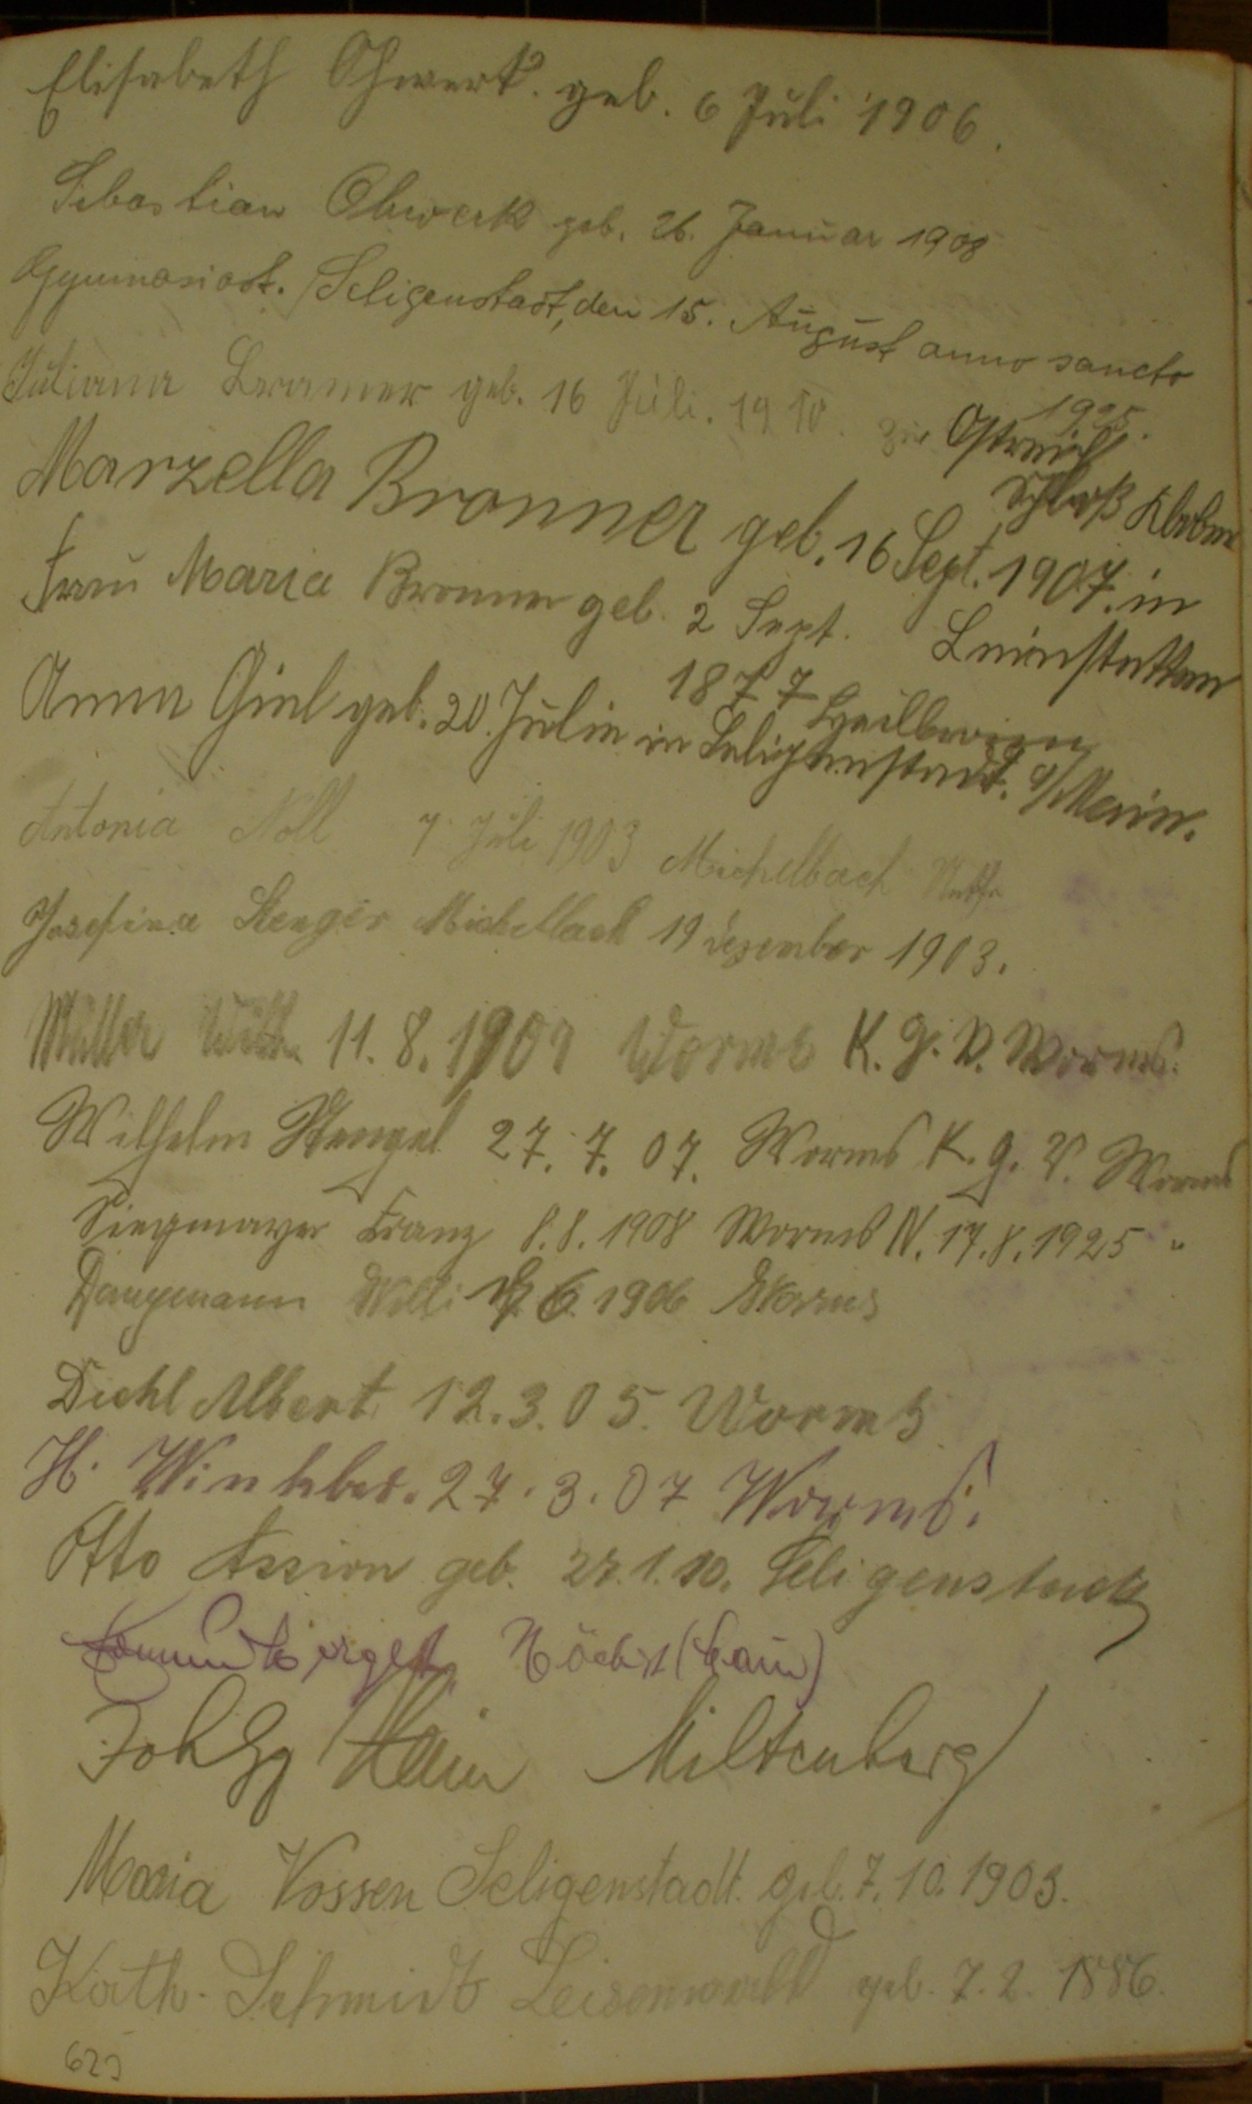 Elisabeth Ohwerk. geb. 6 Juli 1906.
Sebastian Ohwerk geb. 26. Januar 1908
Gymnasiast. Seligenstadt, den 15. August anno sancto
1925.
Juliana Kramer geb. 16 Juli. 1910. zur
Marzella Bronner geb. 16 Sept. 1907. in
Leinstetten
Frau Maria Bronner geb. 2 Sept.
1877 Heilbronn
Anna Giel geb. 20. Julie in Seligenstadt. a/Main.
Antonia Noll 7. Juli 1903 Michelbach
Josefina Stenger Michelbach 19 Dezember 1903.
Müller 11. 8. 1909 Worms K. G. V. Worms.
Wilhelm Stengel 27. 7. 07. Worms K. G. V. Worms
Siegmayer Franz 8. 8. 1908 Worms N. 17. 8. 1925 "
Willi 6. 1906 Worms
Diehl Albert 12. 3. 05. Worms
H. 27. 3. 07 Worms.
Otto Assion geb. 27. 1. 10. Seligenstadt
Höchst (Main)
Joh Gg Hain Miltenberg
Maria Vossen Seligenstadt. geb. 7. 10. 1903.
Kath. Schmidt Leisenwald geb. 7. 2. 1886.
623